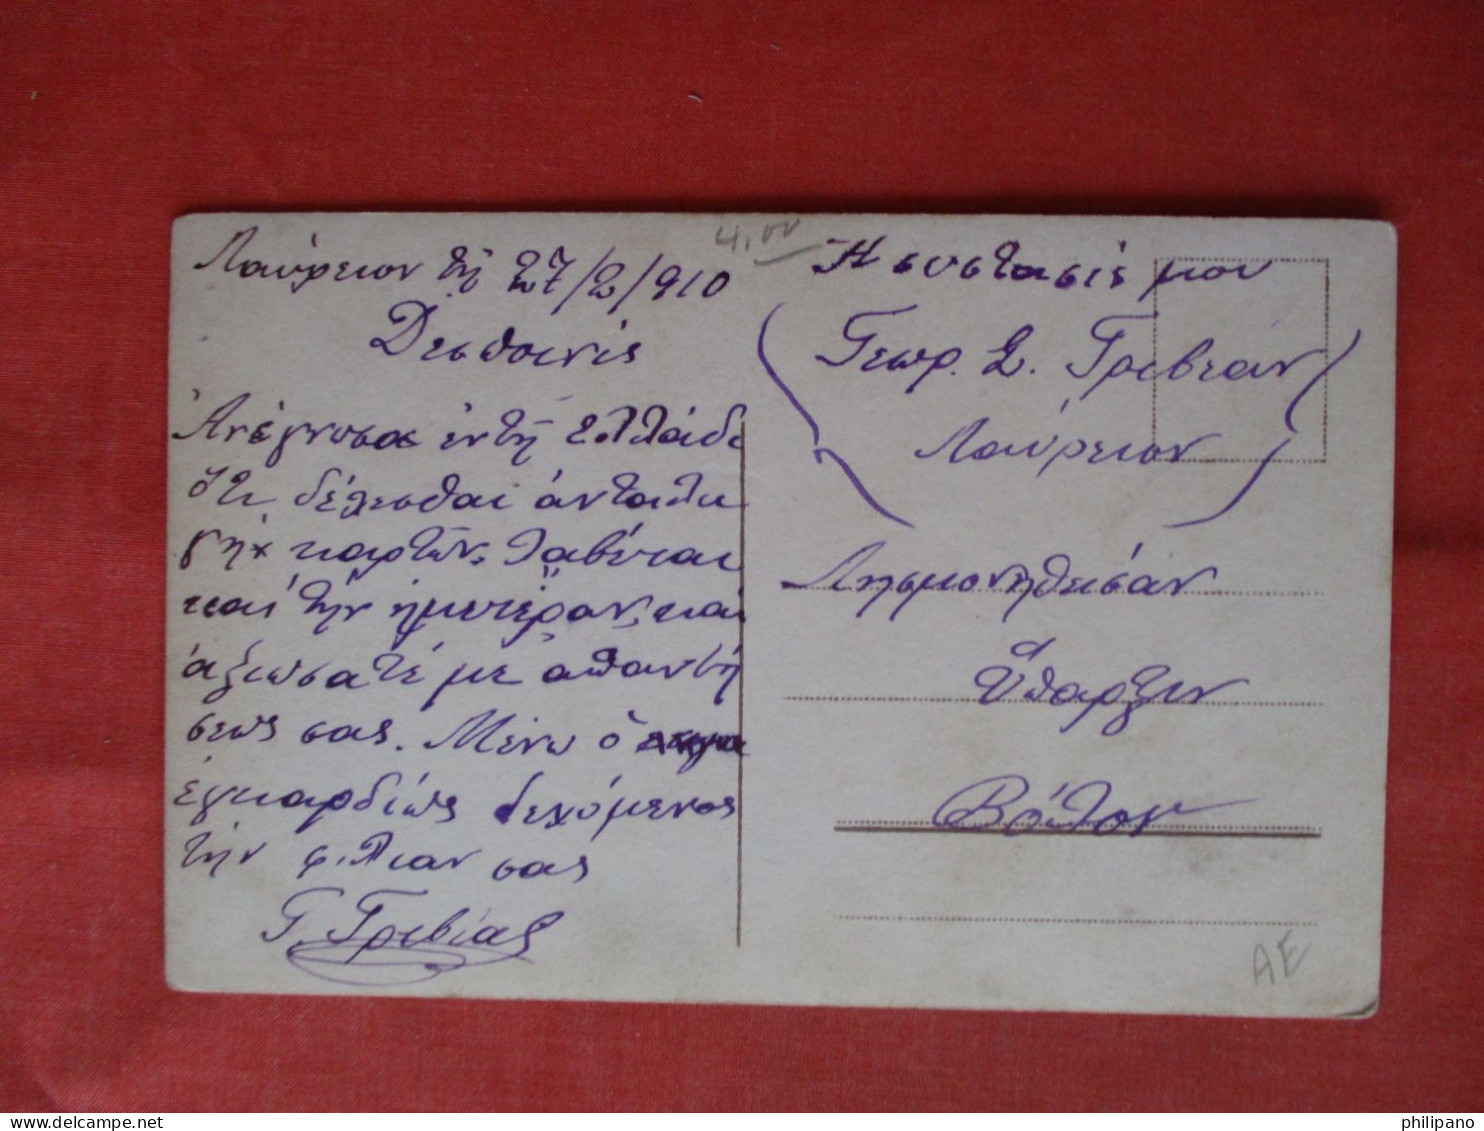 Λαύρειον τῇ 27/2/910
Δεσποινίς
Ἀνέγνωσα ἐν τῇ Ἑλλάδι
ὅτι δέχεσθαι ἀνταλλα
γὴν καρτῶν. Λαβέται
καὶ τὴν ἡμετέραν, καὶ
ἀξιώσατέ με ἀπαντή
σεως σας. Μένω ὁ
ἐγκαρδίως δεχόμενος
τὴν φιλίαν σας
Γ. Γριβέας
4.00
Ἡ σύστασίς μου
(Γεωρ. Σ. Γριβέαν
Λαύρειον)
Λησμονηθεῖσαν
Ὕπαρξιν
Βόλον
AE
philipano